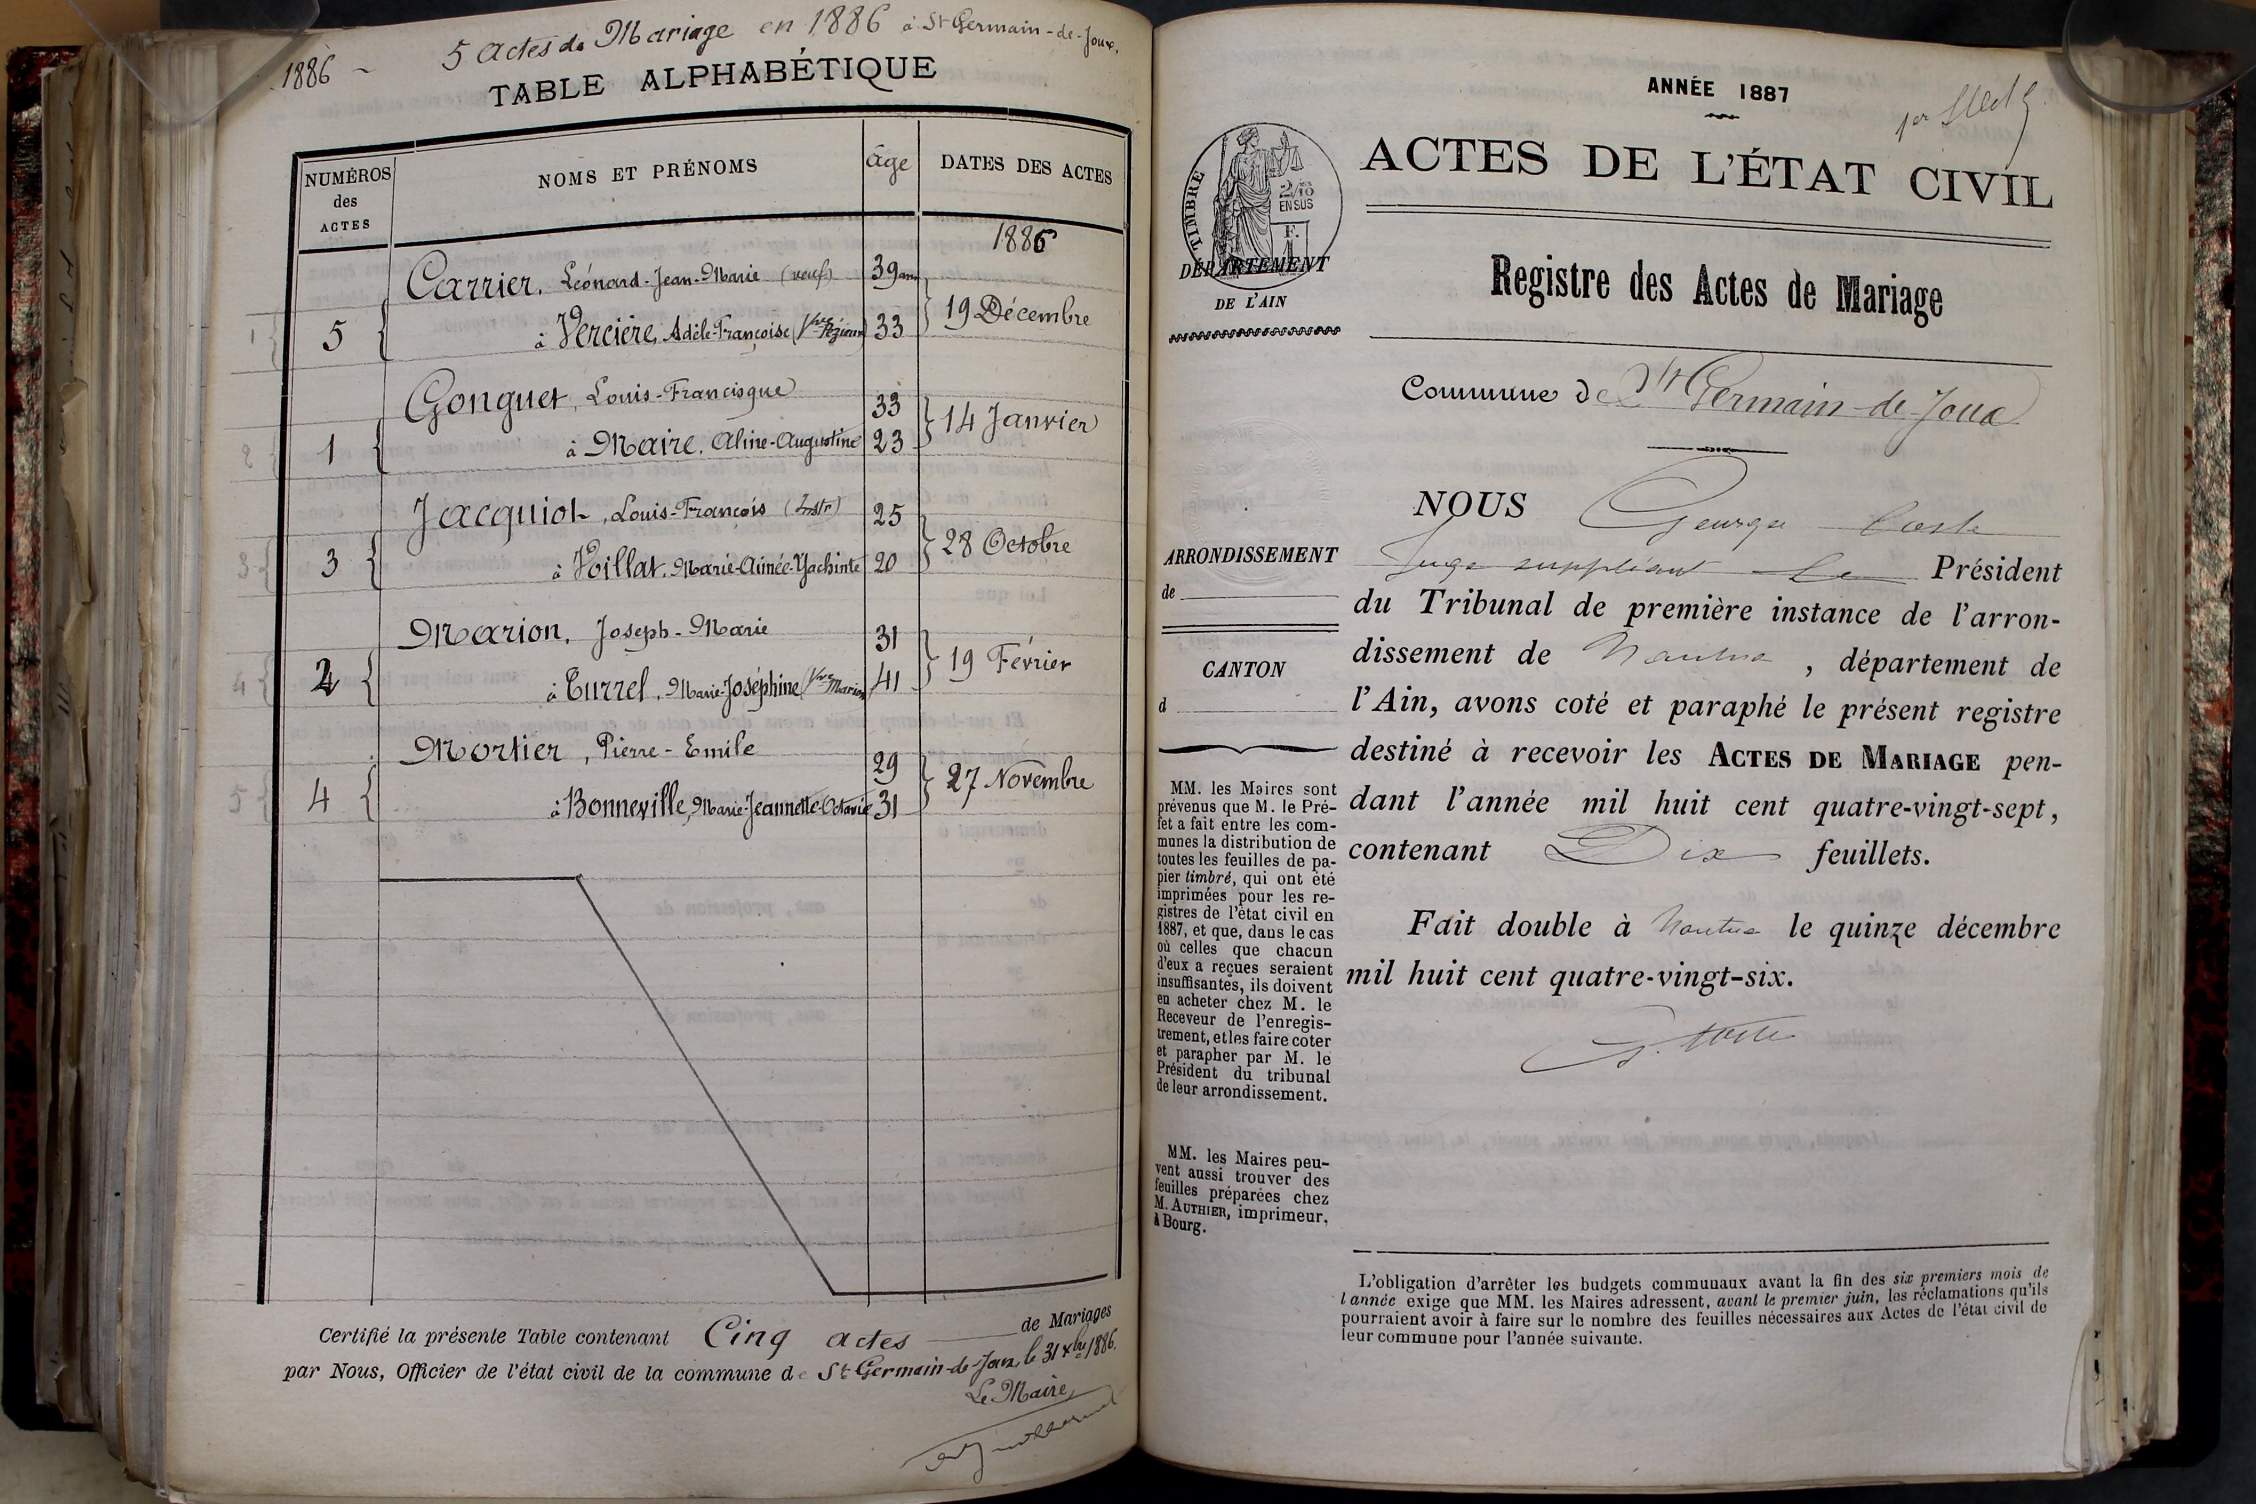 1886 – 5 Actes de Mariage en 1886 à St Germain-de-Joux.
TABLE ALPHABÉTIQUE
NUMÉROS des ACTES
NOMS ET PRÉNOMS
âge
DATES DES ACTES
1886
Carrier, Léonard-Jean-Marie (veuf) 39 ans
1 { 5 { à Vercière, Adèle-Françoise (Vve 33 } 19 Décembre
Gonguet, Louis-Francisque 33
2 { 1 { à Maire, Aline-Augustine 23 } 14 Janvier
Jacquiot, Louis-François (Instr) 25
3 { 3 { à Voillat, Marie-Aimée-Yachinte 20 } 28 Octobre
Marion, Joseph-Marie 31
4 { 2 { à Turrel, Marie-Joséphine (Vve Marion 41 } 19 Février
Mortier, Pierre-Emile 29
5 { 4 { à Bonneville, Marie-Jeannette-Octavie 31 } 27 Novembre
Certifié la présente Table contenant Cinq actes de Mariages
par Nous, Officier de l'état civil de la commune de St Germain-de-Joux, le 31 xbre 1886.
Le Maire,
ANNÉE 1887
1er
ACTES DE L'ÉTAT CIVIL
TIMBRE
2/10
EN SUS
F.
1
DÉPARTEMENT
DE L'AIN
Registre des Actes de Mariage
Commune de St Germain-de-Joux
NOUS George Coste
Juge suppléant Le Président
du Tribunal de première instance de l'arron-
dissement de Nantua, département de
l'Ain, avons coté et paraphé le présent registre
destiné à recevoir les ACTES DE MARIAGE pen-
dant l'année mil huit cent quatre-vingt-sept,
contenant Dix feuillets.
Fait double à Nantua le quinze décembre
mil huit cent quatre-vingt-six.
G. Coste
ARRONDISSEMENT
de
CANTON
d
MM. les Maires sont
prévenus que M. le Pré-
fet a fait entre les com-
munes la distribution de
toutes les feuilles de pa-
pier timbré, qui ont été
imprimées pour les re-
gistres de l'état civil en
1887, et que, dans le cas
où celles que chacun
d'eux a reçues seraient
insuffisantes, ils doivent
en acheter chez M. le
Receveur de l'enregis-
trement, et les faire coter
et parapher par M. le
Président du tribunal
de leur arrondissement.
MM. les Maires peu-
vent aussi trouver des
feuilles préparées chez
M. AUTHIER, imprimeur,
à Bourg.
L'obligation d'arrêter les budgets communaux avant la fin des six premiers mois de
l'année exige que MM. les Maires adressent, avant le premier juin, les réclamations qu'ils
pourraient avoir à faire sur le nombre des feuilles nécessaires aux Actes de l'état civil de
leur commune pour l'année suivante.